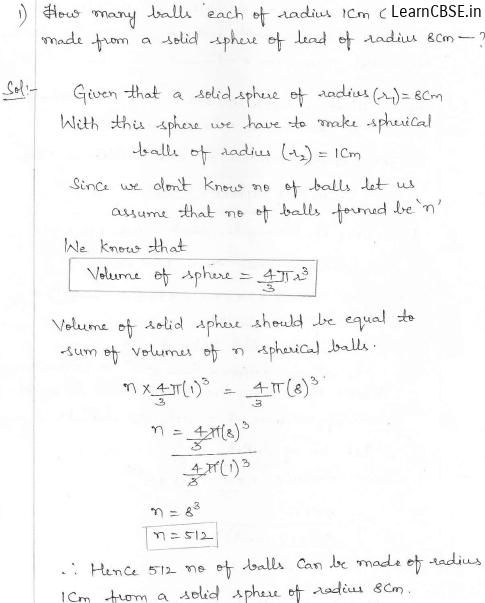 1) How many balls each of radius 1Cm C LearnCBSE.in
made from a solid sphere of lead of radius 8cm — ?
Sol:- Given that a solid sphere of radius (r₁) = 8Cm
With this sphere we have to make spherical
balls of radius (r₂) = 1Cm
Since we don't know no of balls let us
assume that no of balls formed be 'n'
We know that
Volume of sphere = 4/3 πr³
Volume of solid sphere should be equal to
sum of volumes of n spherical balls.
n × 4/3 π(1)³ = 4/3 π(8)³
n = 4/3 π(8)³
4/3 π(1)³
n = 8³
n = 512
∴ Hence 512 no of balls Can be made of radius
1Cm from a solid sphere of radius 8Cm.